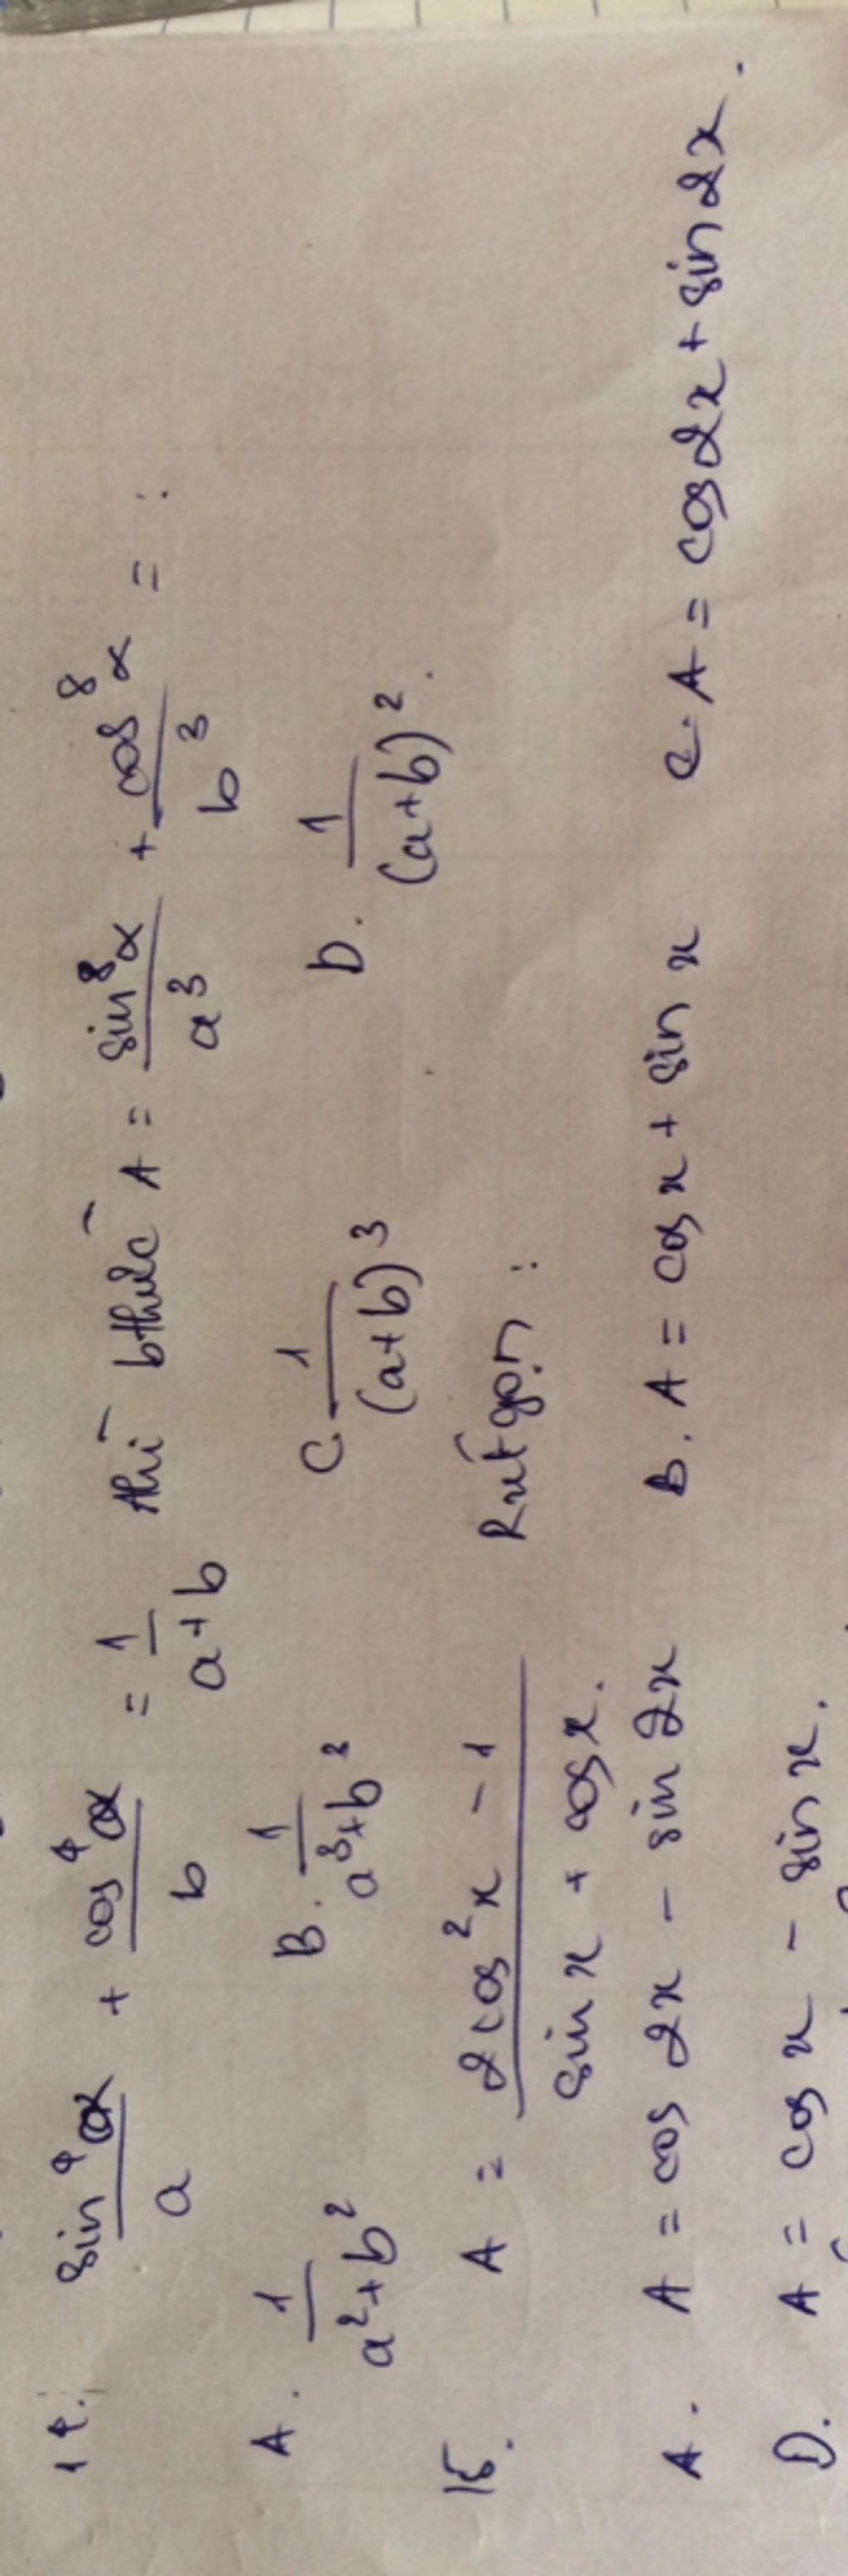 14. sin⁴α/a + cos⁴α/b = 1/(a+b) thì bthức A = sin⁸α/a³ + cos⁸α/b³ = :
A. 1/(a²+b²) B. 1/(a³+b²) C. 1/(a+b)³ D. 1/(a+b)².
15. A = (2cos²x - 1)/(sin x + cos x). Rút gọn :
A. A = cos 2x - sin 2x B. A = cos x + sin x C. A = cos 2x + sin 2x.
D. A = cos x - sin x.